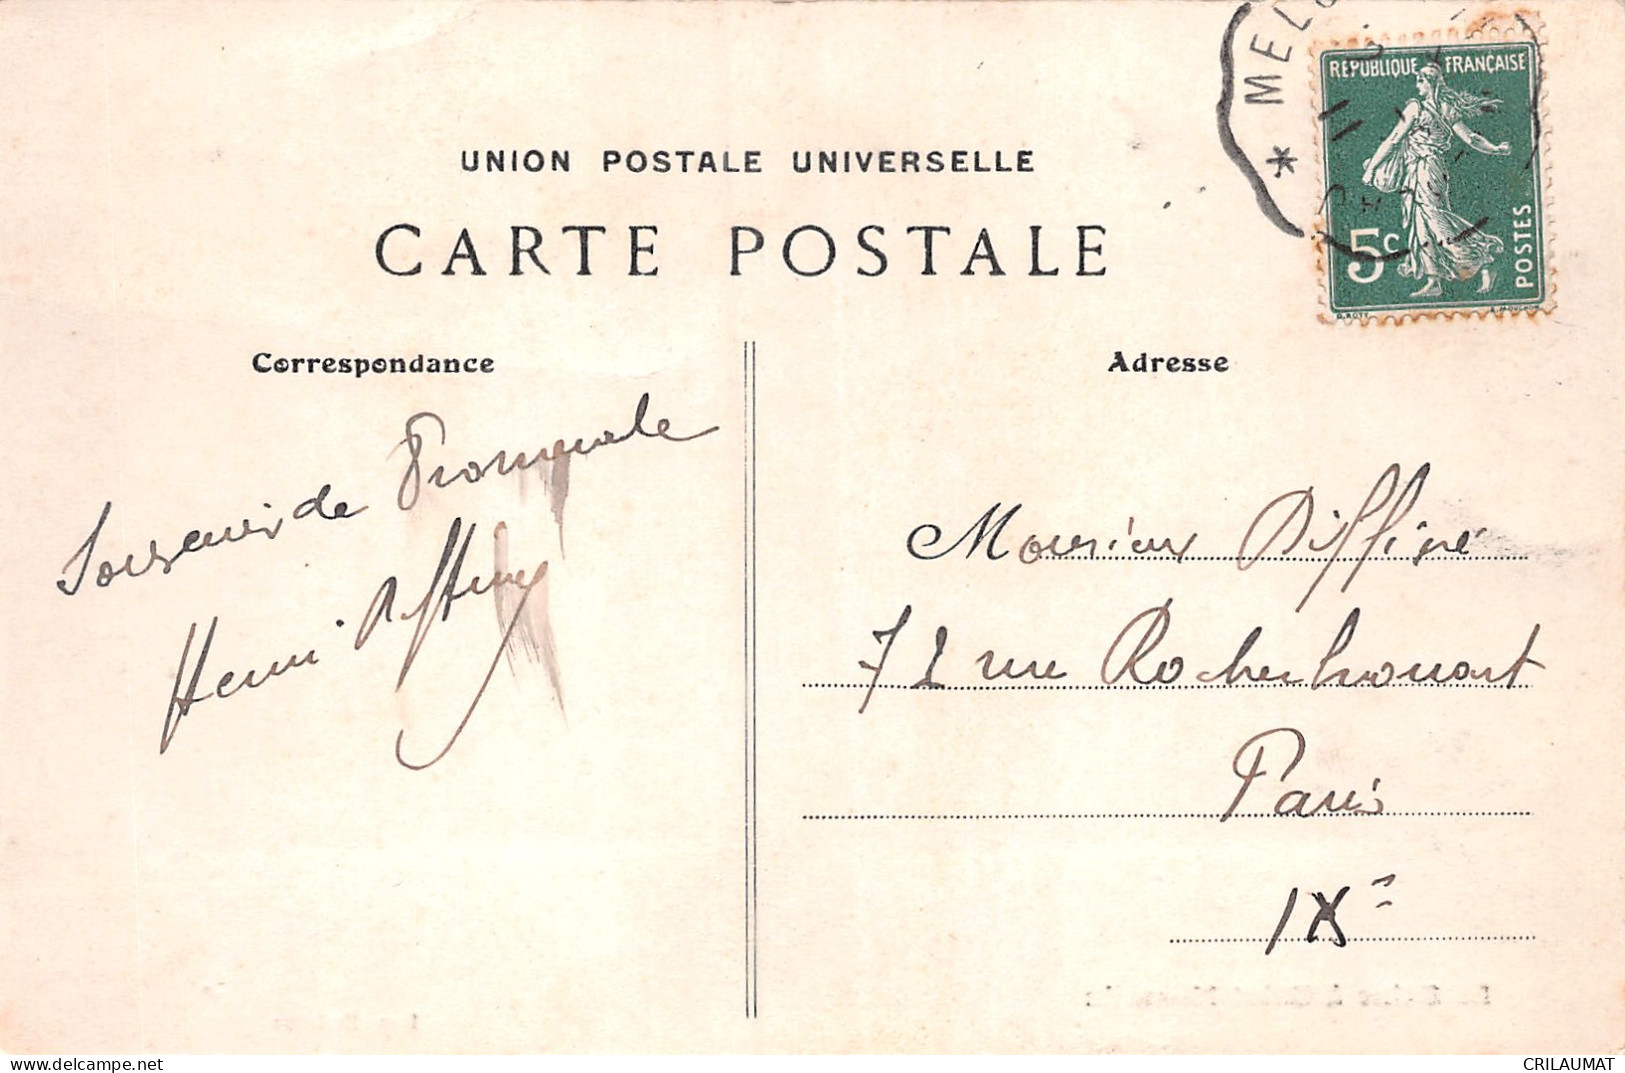 UNION POSTALE UNIVERSELLE
CARTE POSTALE
* MEL
REPUBLIQUE FRANÇAISE
5c POSTES
O. ROTY
Correspondance
Souvenir de Promenade
Henri
Adresse
Monsieur
72 rue Rochechouart
Paris
IXe
delcampe.net
CRILAUMAT